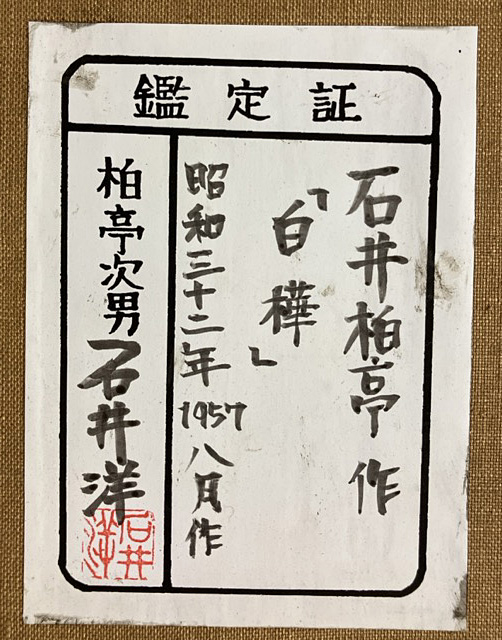 鑑定証
石井柏亭 作
「白樺」
昭和三十二年 1957 八月作
柏亭次男 石井洋
石井洋